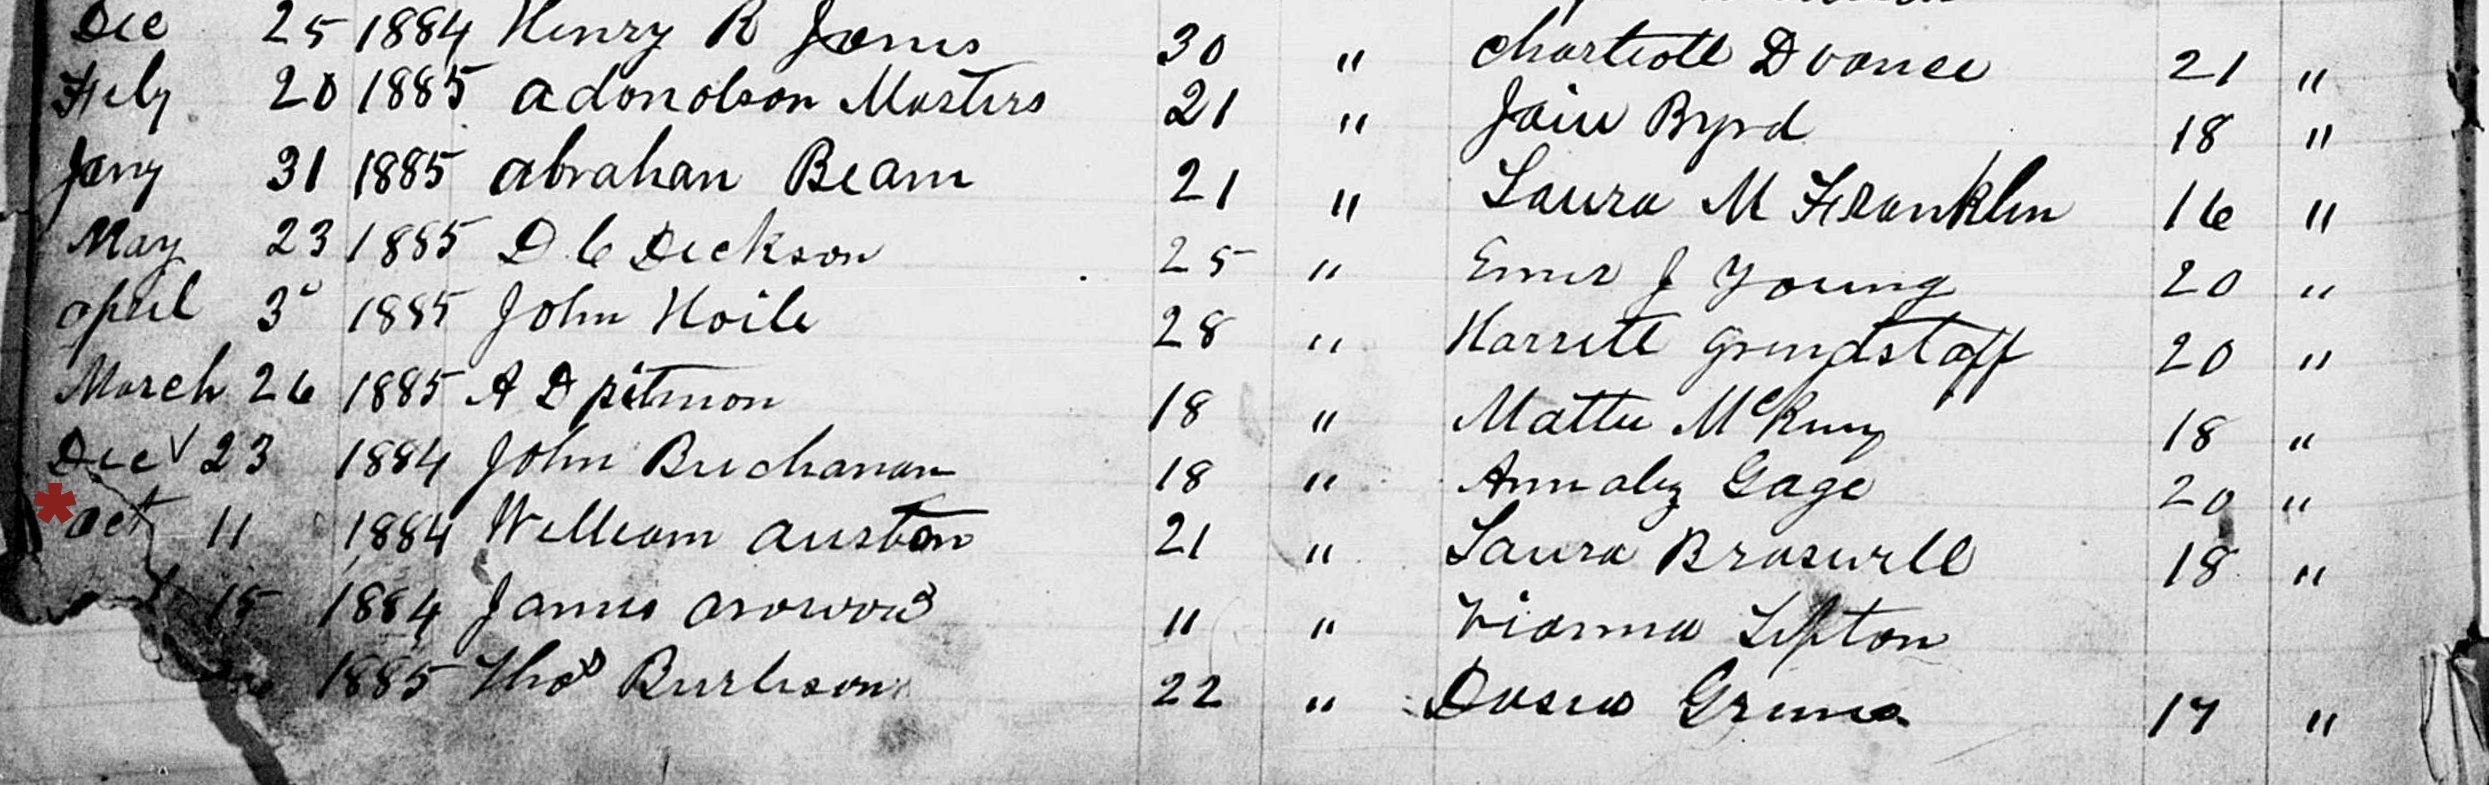 Dec 25 1884 Henry R Jones 30 " Charlotte D Vance 21 "
Feby 20 1885 Adonolson Masters 21 " Jain Byrd 18 "
Jany 31 1885 Abraham Beam 21 " Laura M Franklin 16 "
May 23 1885 D C Dickson 25 " Emer J Young 20 "
April 3 1885 John Hoile 28 " Harrett Grindstaff 20 "
March 26 1885 A D pitmon 18 " Mattie McKiny 18 "
Dec 23 1884 John Buchanan 18 " Annaliz Gage 20 "
* Oct 11 1884 William Auston 21 " Laura Braswell 18 "
15 1884 James " " Vianna Lipton
1885 Thos Burleson 22 " 17 "